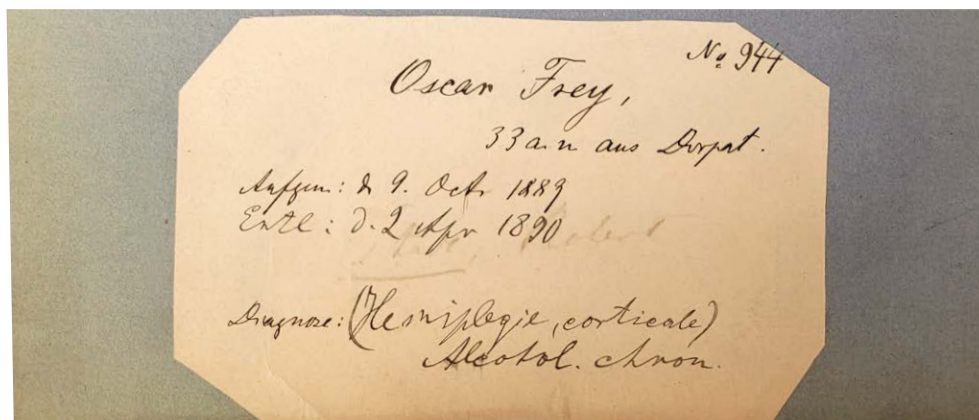 No 944
Oscar Frey,
33 a. n. aus Dorpat.
Aufgen: d 9. Octr 1889
Entl: d. 2 Apr 1890
Diagnose: (Hemiplegie, corticale)
Alcohol. chron.